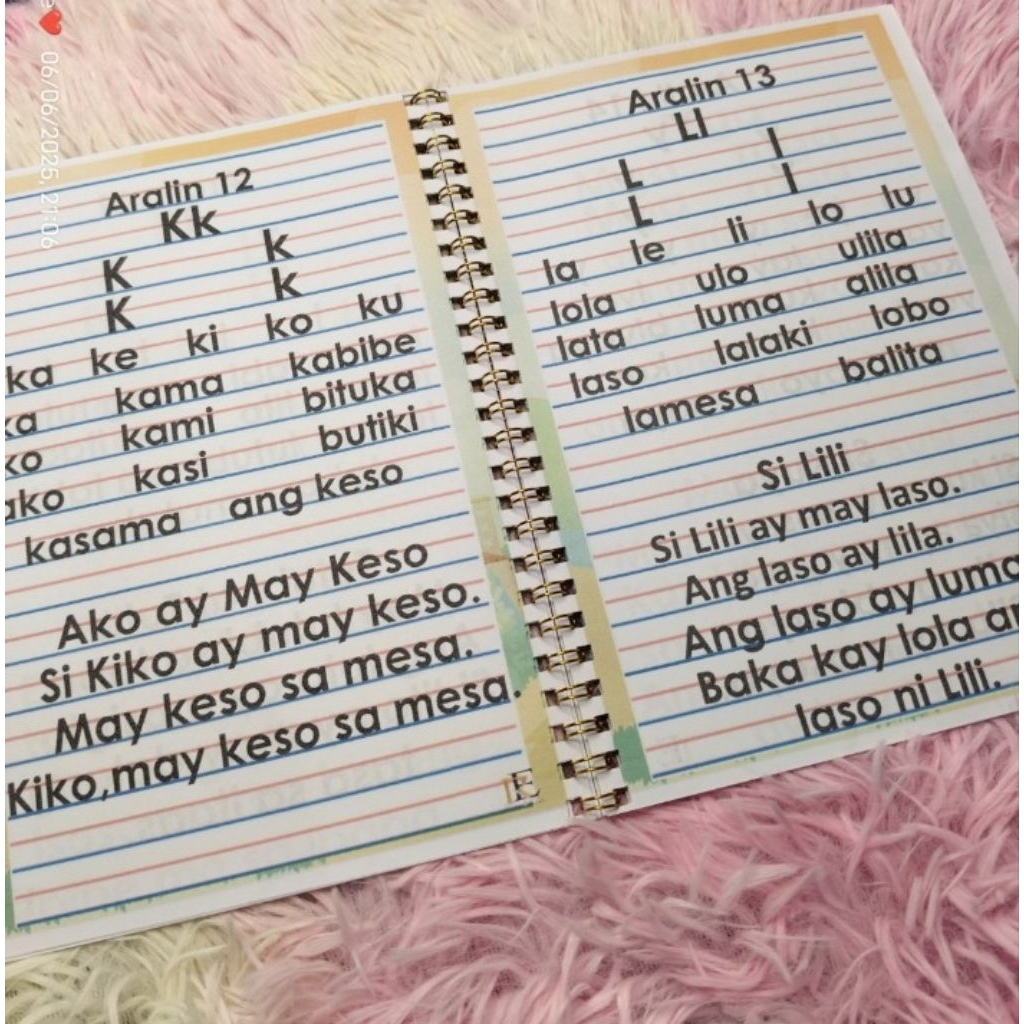 Aralin 12
Kk
K k
K k
ka ke ki ko ku
kama kabibe
kami bituka
kasi butiki
kasama ang keso
Ako ay May Keso
Si Kiko ay may keso.
May keso sa mesa.
Kiko,may keso sa mesa.
Aralin 13
Ll
L l
L l
la le li lo lu
lola ulo ulila
lata luma alila
laso lalaki lobo
lamesa balita
Si Lili
Si Lili ay may laso.
Ang laso ay lila.
Ang laso ay luma
Baka kay lola
laso ni Lili.
06/06/2025, 21:06